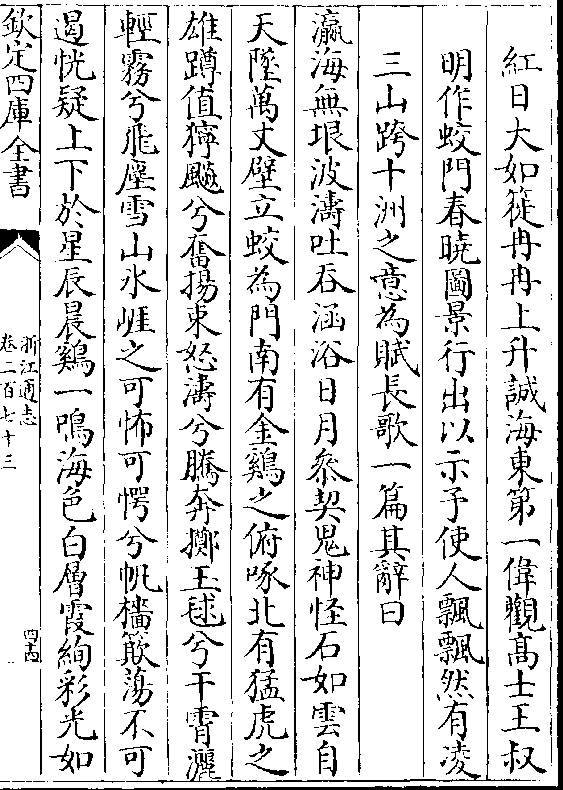 紅日大如簁冉冉上升誠海東第一偉觀髙士王叔
明作蛟門春曉圖景行出以示予使人飄飄然有凌
三山跨十洲之意為賦長歌一篇其辭曰
瀛海無垠波濤吐吞涵浴日月叅契鬼神怪石如雲自
天墜萬丈壁立蛟為門南有金鷄之俯啄北有猛虎之
雄蹲值獰飈兮奮揚束怒濤兮騰奔擲玉毬兮干霄灑
輕霧兮飛塵雪山氷崕之可怖可愕兮帆檣簸蕩不可
遏恍疑上下於星辰晨鷄一鳴海色白層霞絢彩光如
欽定四庫全書
浙江通志
卷二百七十三
四十四